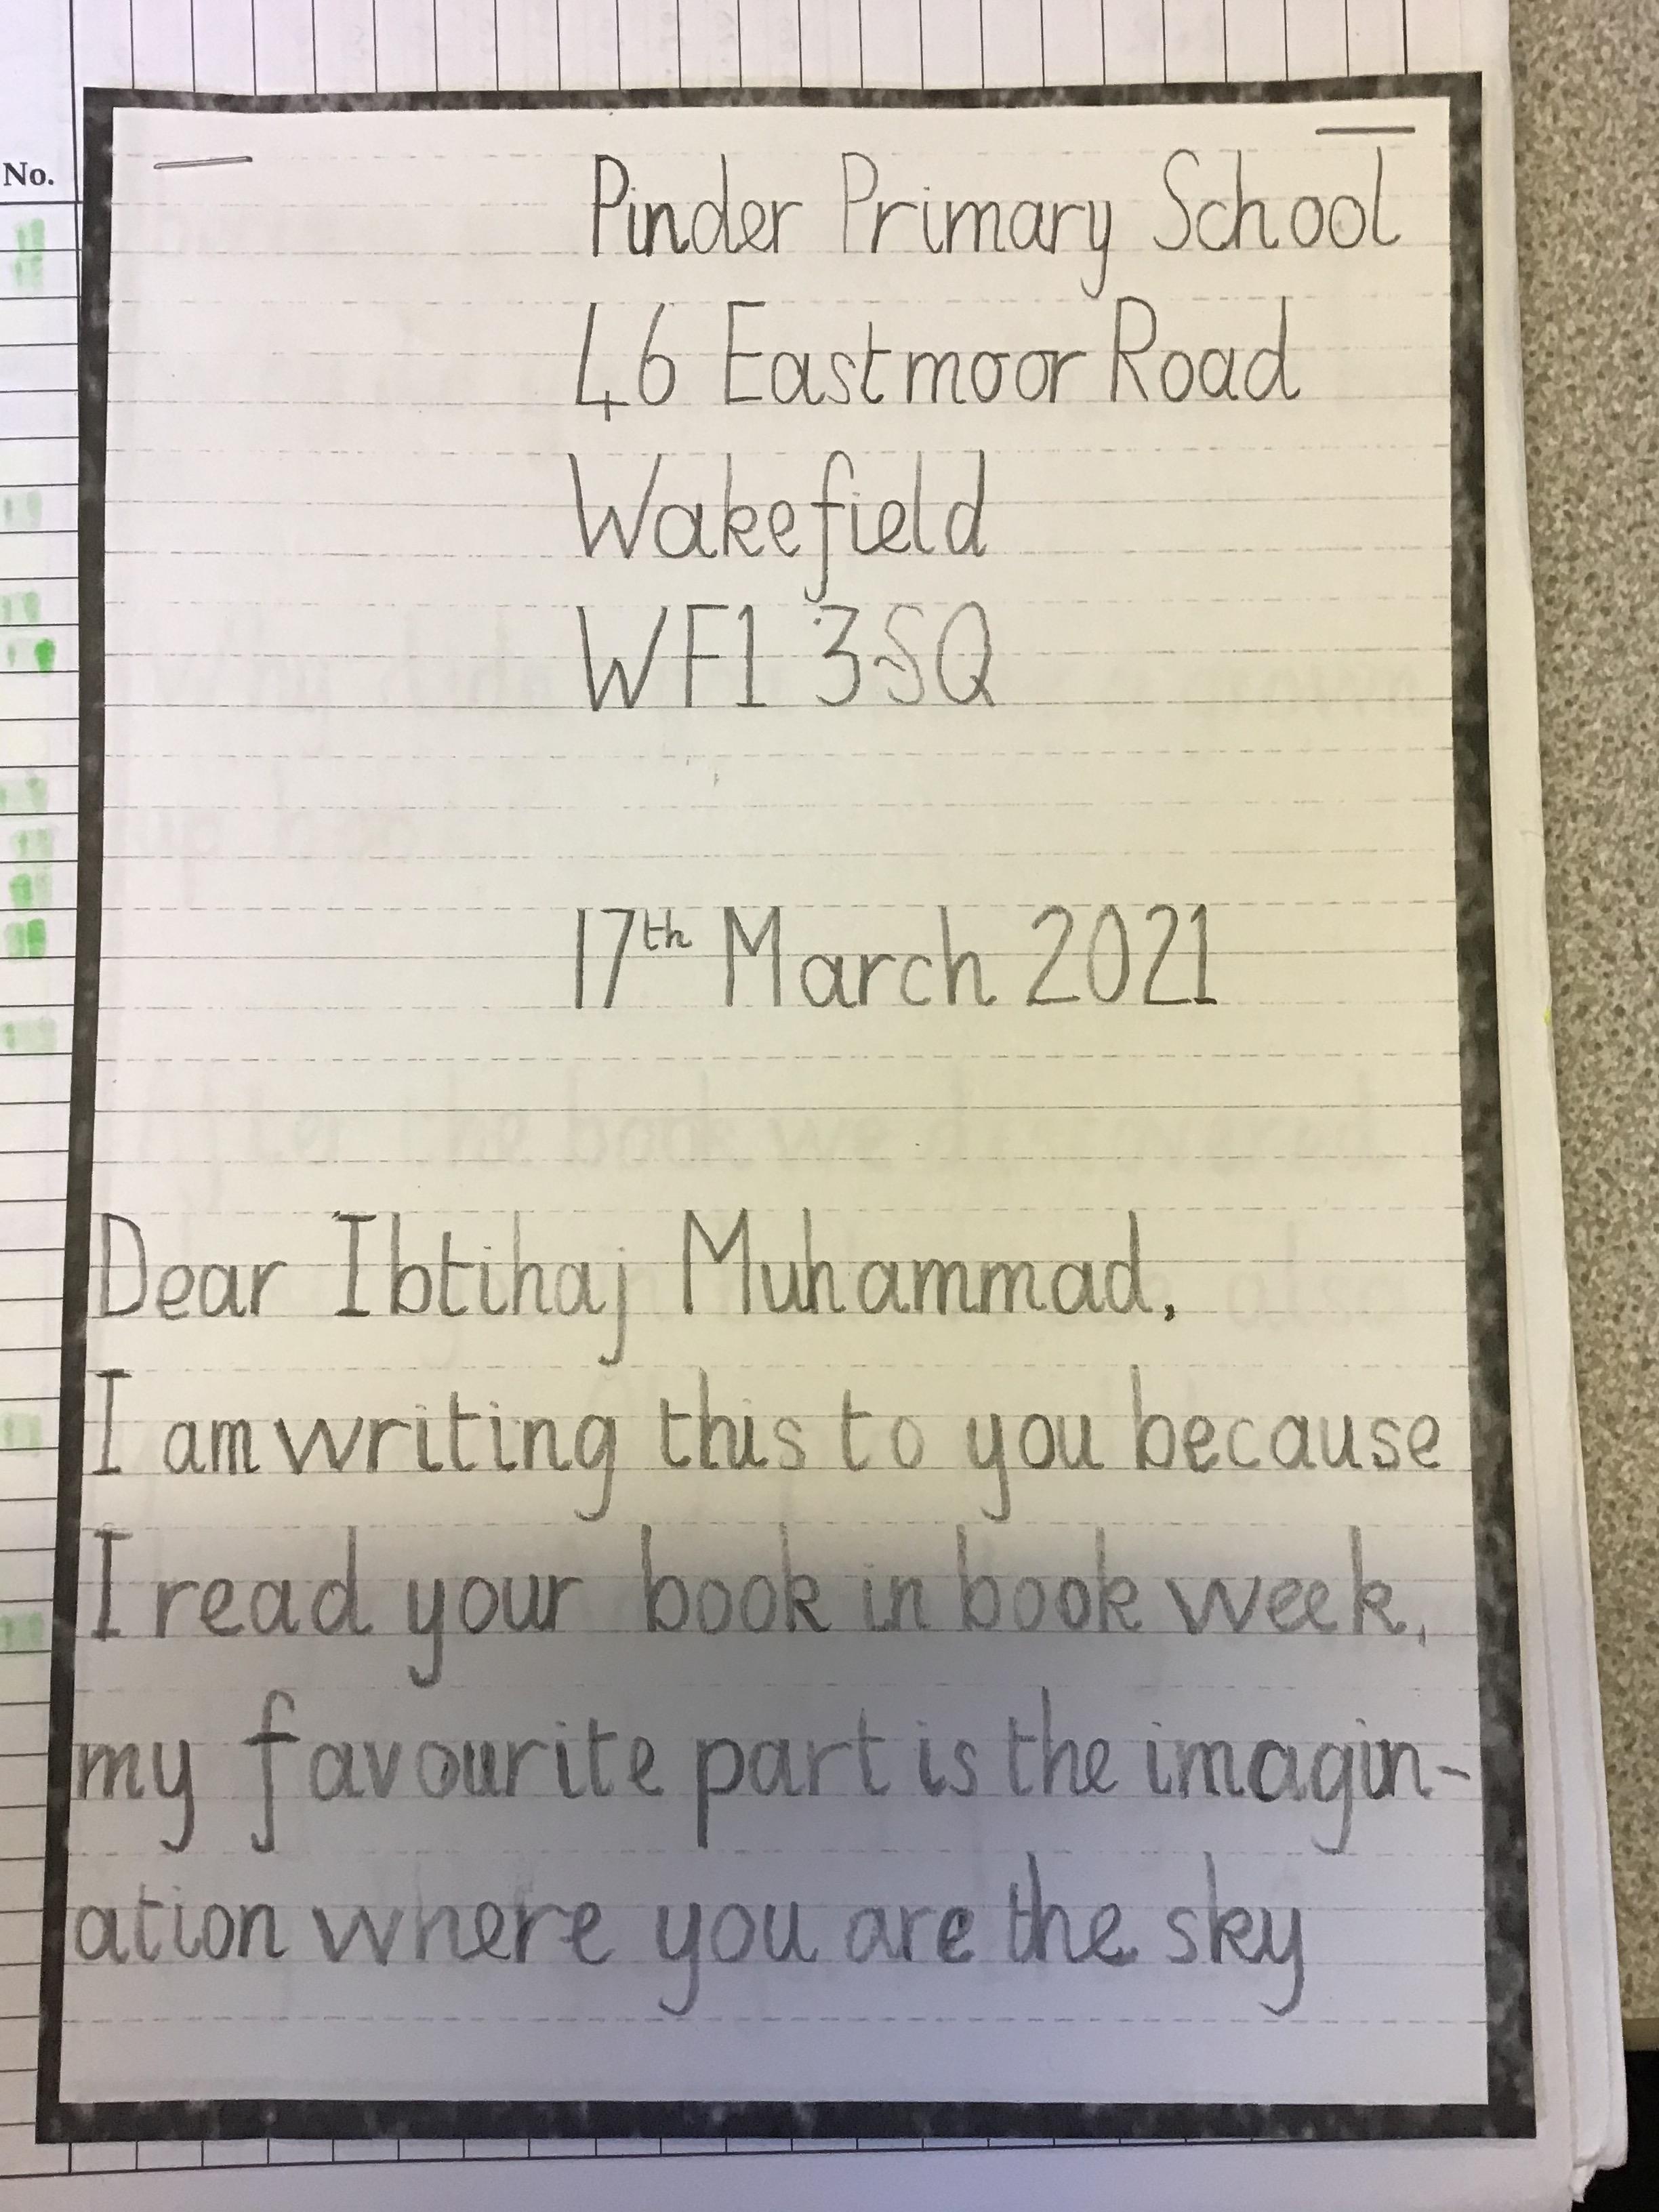 No.
Pinder Primary School
46 Eastmoor Road
Wakefield
WF1 3SQ
17th March 2021
Dear Ibtihaj Muhammad,
I am writing this to you because
I read your book in book week,
my favourite part is the imagin-
ation where you are the sky